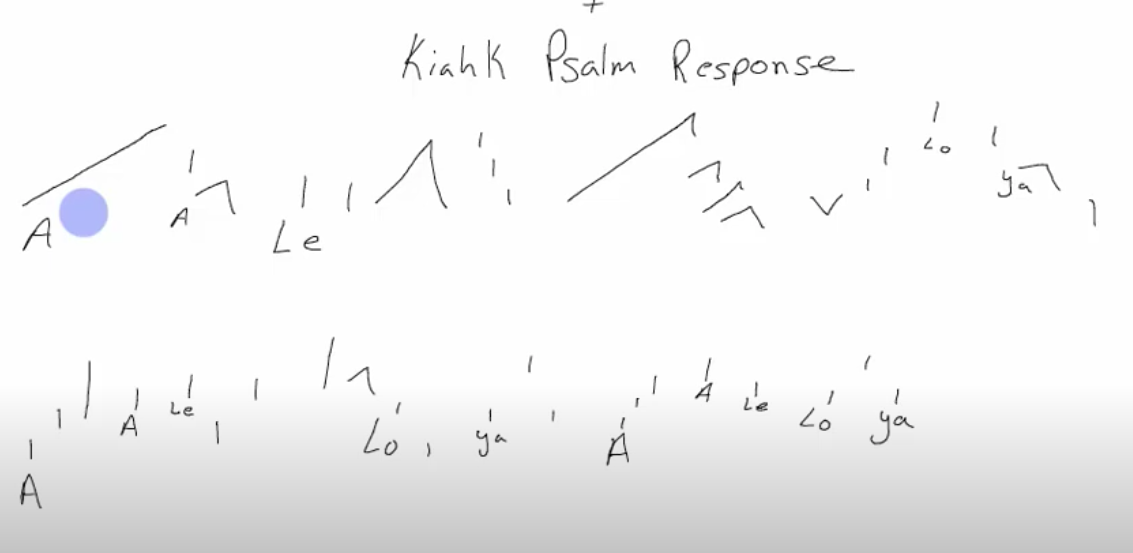 Kiahk Psalm Response
A A Le Lo ya
A A Le Lo ya A A Le Lo ya